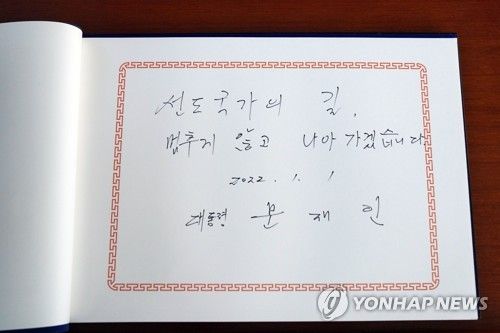 선도국가의 길,
멈추지 않고 나아가겠습니다.
2022. 1. 1
대통령 문재인
YONHAP NEWS